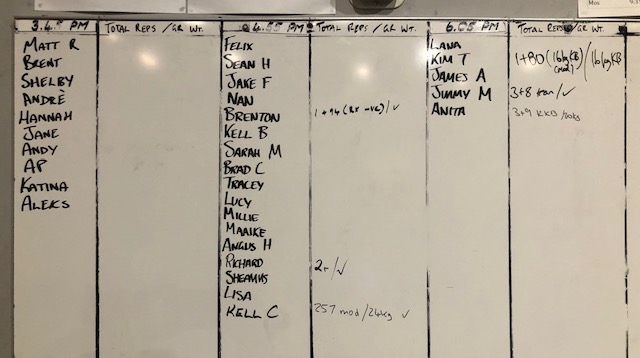 3.45 PM TOTAL REPS / GR WT.
MATT R
BRENT
SHELBY
ANDRÈ
HANNAH
JANE
ANDY
AP
KATINA
ALEKS
4.55 PM TOTAL REPS / GR WT.
FELIX
SEAN H
JAKE F
NAN
BRENTON
KELL B
SARAH M
BRAD C
TRACEY
LUCY
MILLIE
MAAIKE
ANGUS H
RICHARD 2r/✓
SHEAMUS
LISA
KELL C 257 mod/24kg ✓
6.05 PM TOTAL REPS / GR WT.
LANA
KIM T 1+80 (16kgKB) / 16kgKB
JAMES A
JIMMY M 3+8 /✓
ANITA 3+9